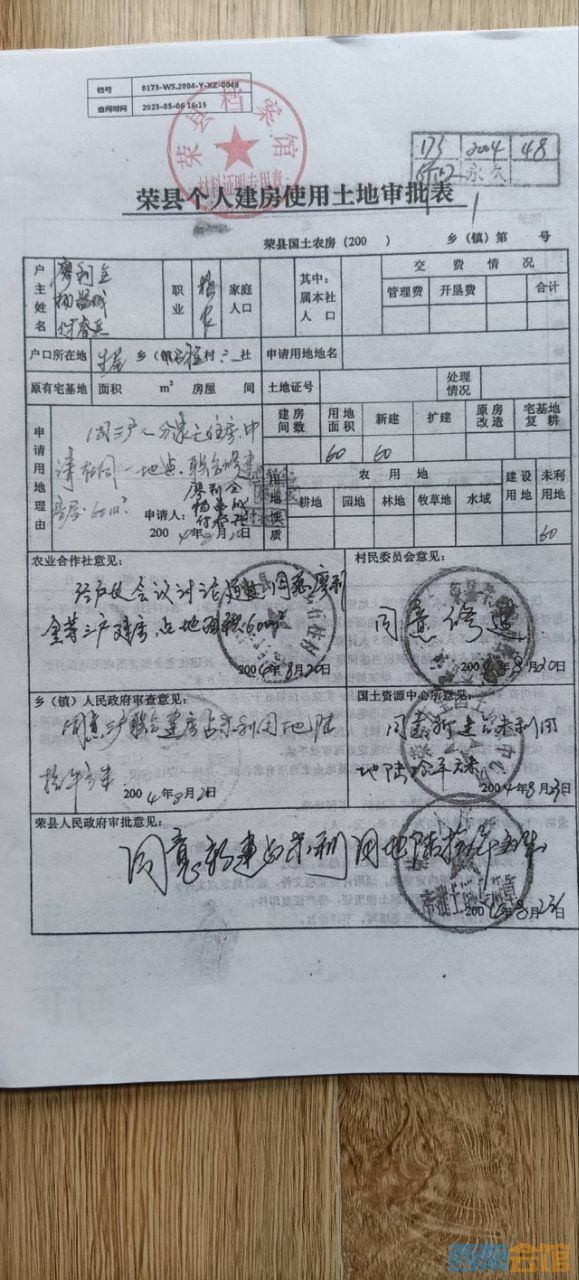 档号 0173-WS.2004-Y-XZ-0048
查阅时间 2023-05-06 16:15
荣县档案馆
材料证明专用章
173 2004 48
永久
荣县个人建房使用土地审批表
荣县国土农房(200 ) 乡(镇)第 号
户主姓名 廖利全
职业 农
家庭人口
其中:属本社人口
交费情况
管理费 开垦费 合计
户口所在地 乡(镇) 村 社 申请用地地名
原有宅基地 面积 m² 房屋 间 土地证号 处理情况
申请用地理由
建房间数 用地面积 新建 扩建 原房改造 宅基地复耕
60 60
因三户人分家无住房.申
请在同一地点.联合修建
住房.60m²
申请人: 廖利全
2004年8月20日
用地性质
农用地 建设用地 未利用地
耕地 园地 林地 牧草地 水域
60
农业合作社意见: 村民委员会意见:
经户长会议讨论通过同意廖利
全等三户建房占地面积60m²
2004年8月20日
同意修建.
2004年8月20日
乡(镇)人民政府审查意见: 国土资源中心所意见:
同意三户联合建房占未利用地陆
拾平方米 2004年8月21日
同意新建占未利用
地陆拾平方米
2004年8月23日
荣县人民政府审批意见:
同意新建占未利用地陆拾平方米
2004年8月23日